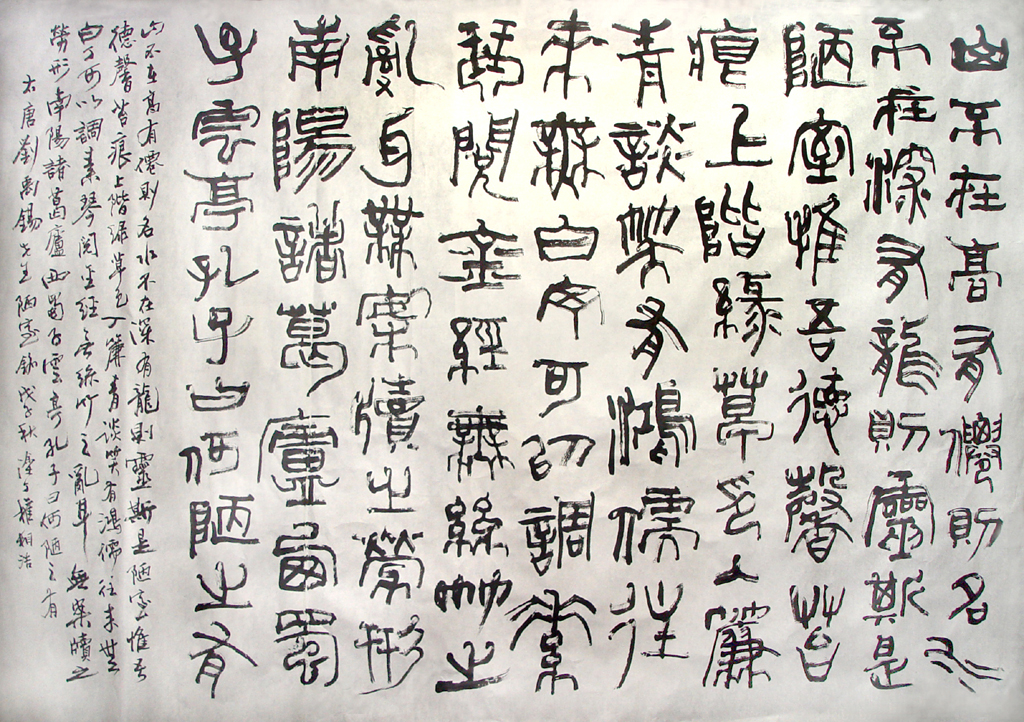 山不在高有僊則名水
不在深有龍則靈斯是
陋室惟吾德馨苔
痕上階緑草色入簾
青談笑有鴻儒往
来無白丁可以調素
琴閱金經無絲竹之
亂耳無案牘之勞形
南陽諸葛廬西蜀
子雲亭孔子曰何陋之有
山不在高有僊則名水不在深有龍則靈斯是陋室惟吾
德馨苔痕上階緑草色入簾青談笑有鴻儒往来無
白丁可以調素琴閱金經無絲竹之亂耳無案牘之
勞形南陽諸葛廬西蜀子雲亭孔子曰何陋之有
大唐劉禹錫先生陋室銘戊子秋